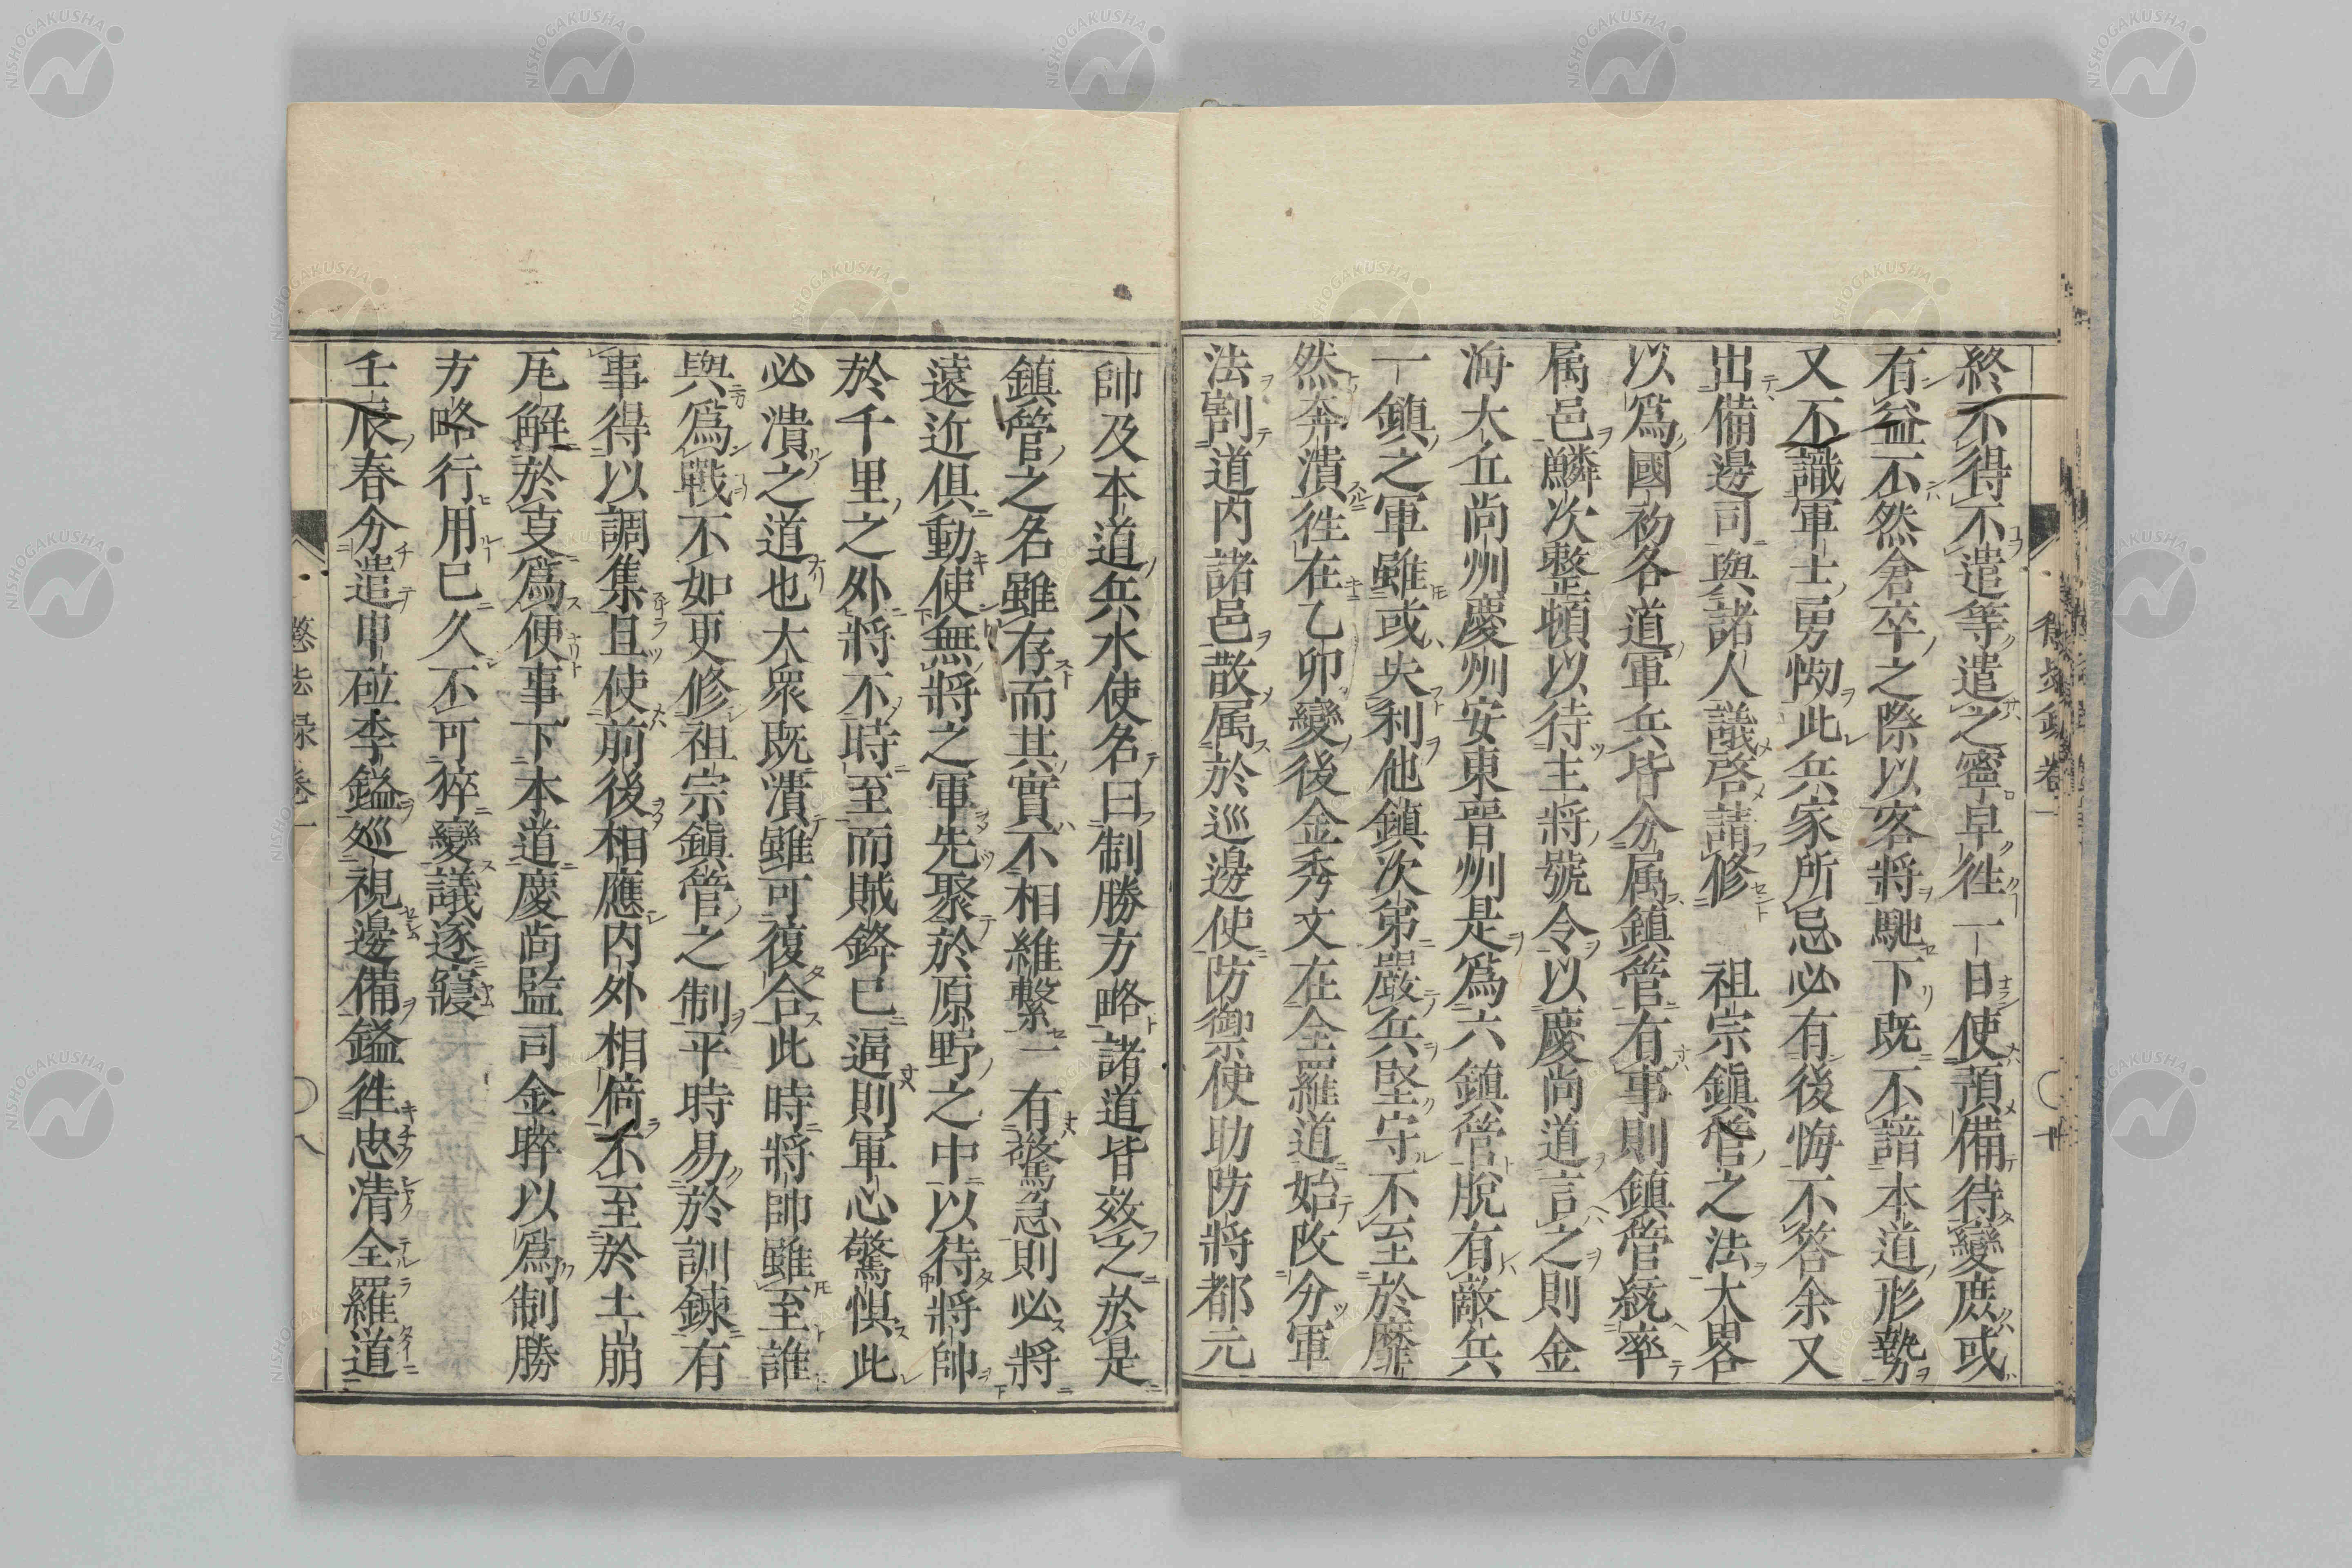 終不得不遣等遣之寧早徃一日使預備待變庶或
有益不然倉卒之際以客將馳下既不諳本道形勢
又不識軍士勇㤼此兵家所忌必有後悔不答余又
出備邊司與諸人議啓請修 祖宗鎮管之法大畧
以爲國初各道軍兵皆分属鎮管有事則鎮管統率
属邑鱗次整頓以待主將號令以慶尚道言之則金
海大丘尚州慶州安東晋州是爲六鎮管脫有敵兵
一鎮之軍雖或失利他鎮次第嚴兵堅守不至於靡
然奔潰徃在乙卯變後金秀文在全羅道始改分軍
法割道内諸邑散属於巡邊使防禦使助防將都元
帥及本道兵水使名曰制勝方略諸道皆效之於是
鎮管之名雖存而其實不相維繫一有驚急則必將
遠近俱動使無將之軍先聚於原野之中以待將帥
於千里之外將不時至而賊鋒已逼則軍心驚惧此
必潰之道也大衆既潰雖可復合此時將帥雖至誰
與爲戰不如更修祖宗鎮管之制平時易於訓鍊有
事得以調集且使前後相應内外相倚不至於土崩
瓦解於事爲便事下本道慶尚監司金睟以爲制勝
方略行用已久不可猝變議遂寢
壬辰春分遣申砬李鎰巡視邊備鎰徃忠清全羅道
懲毖録卷一
八